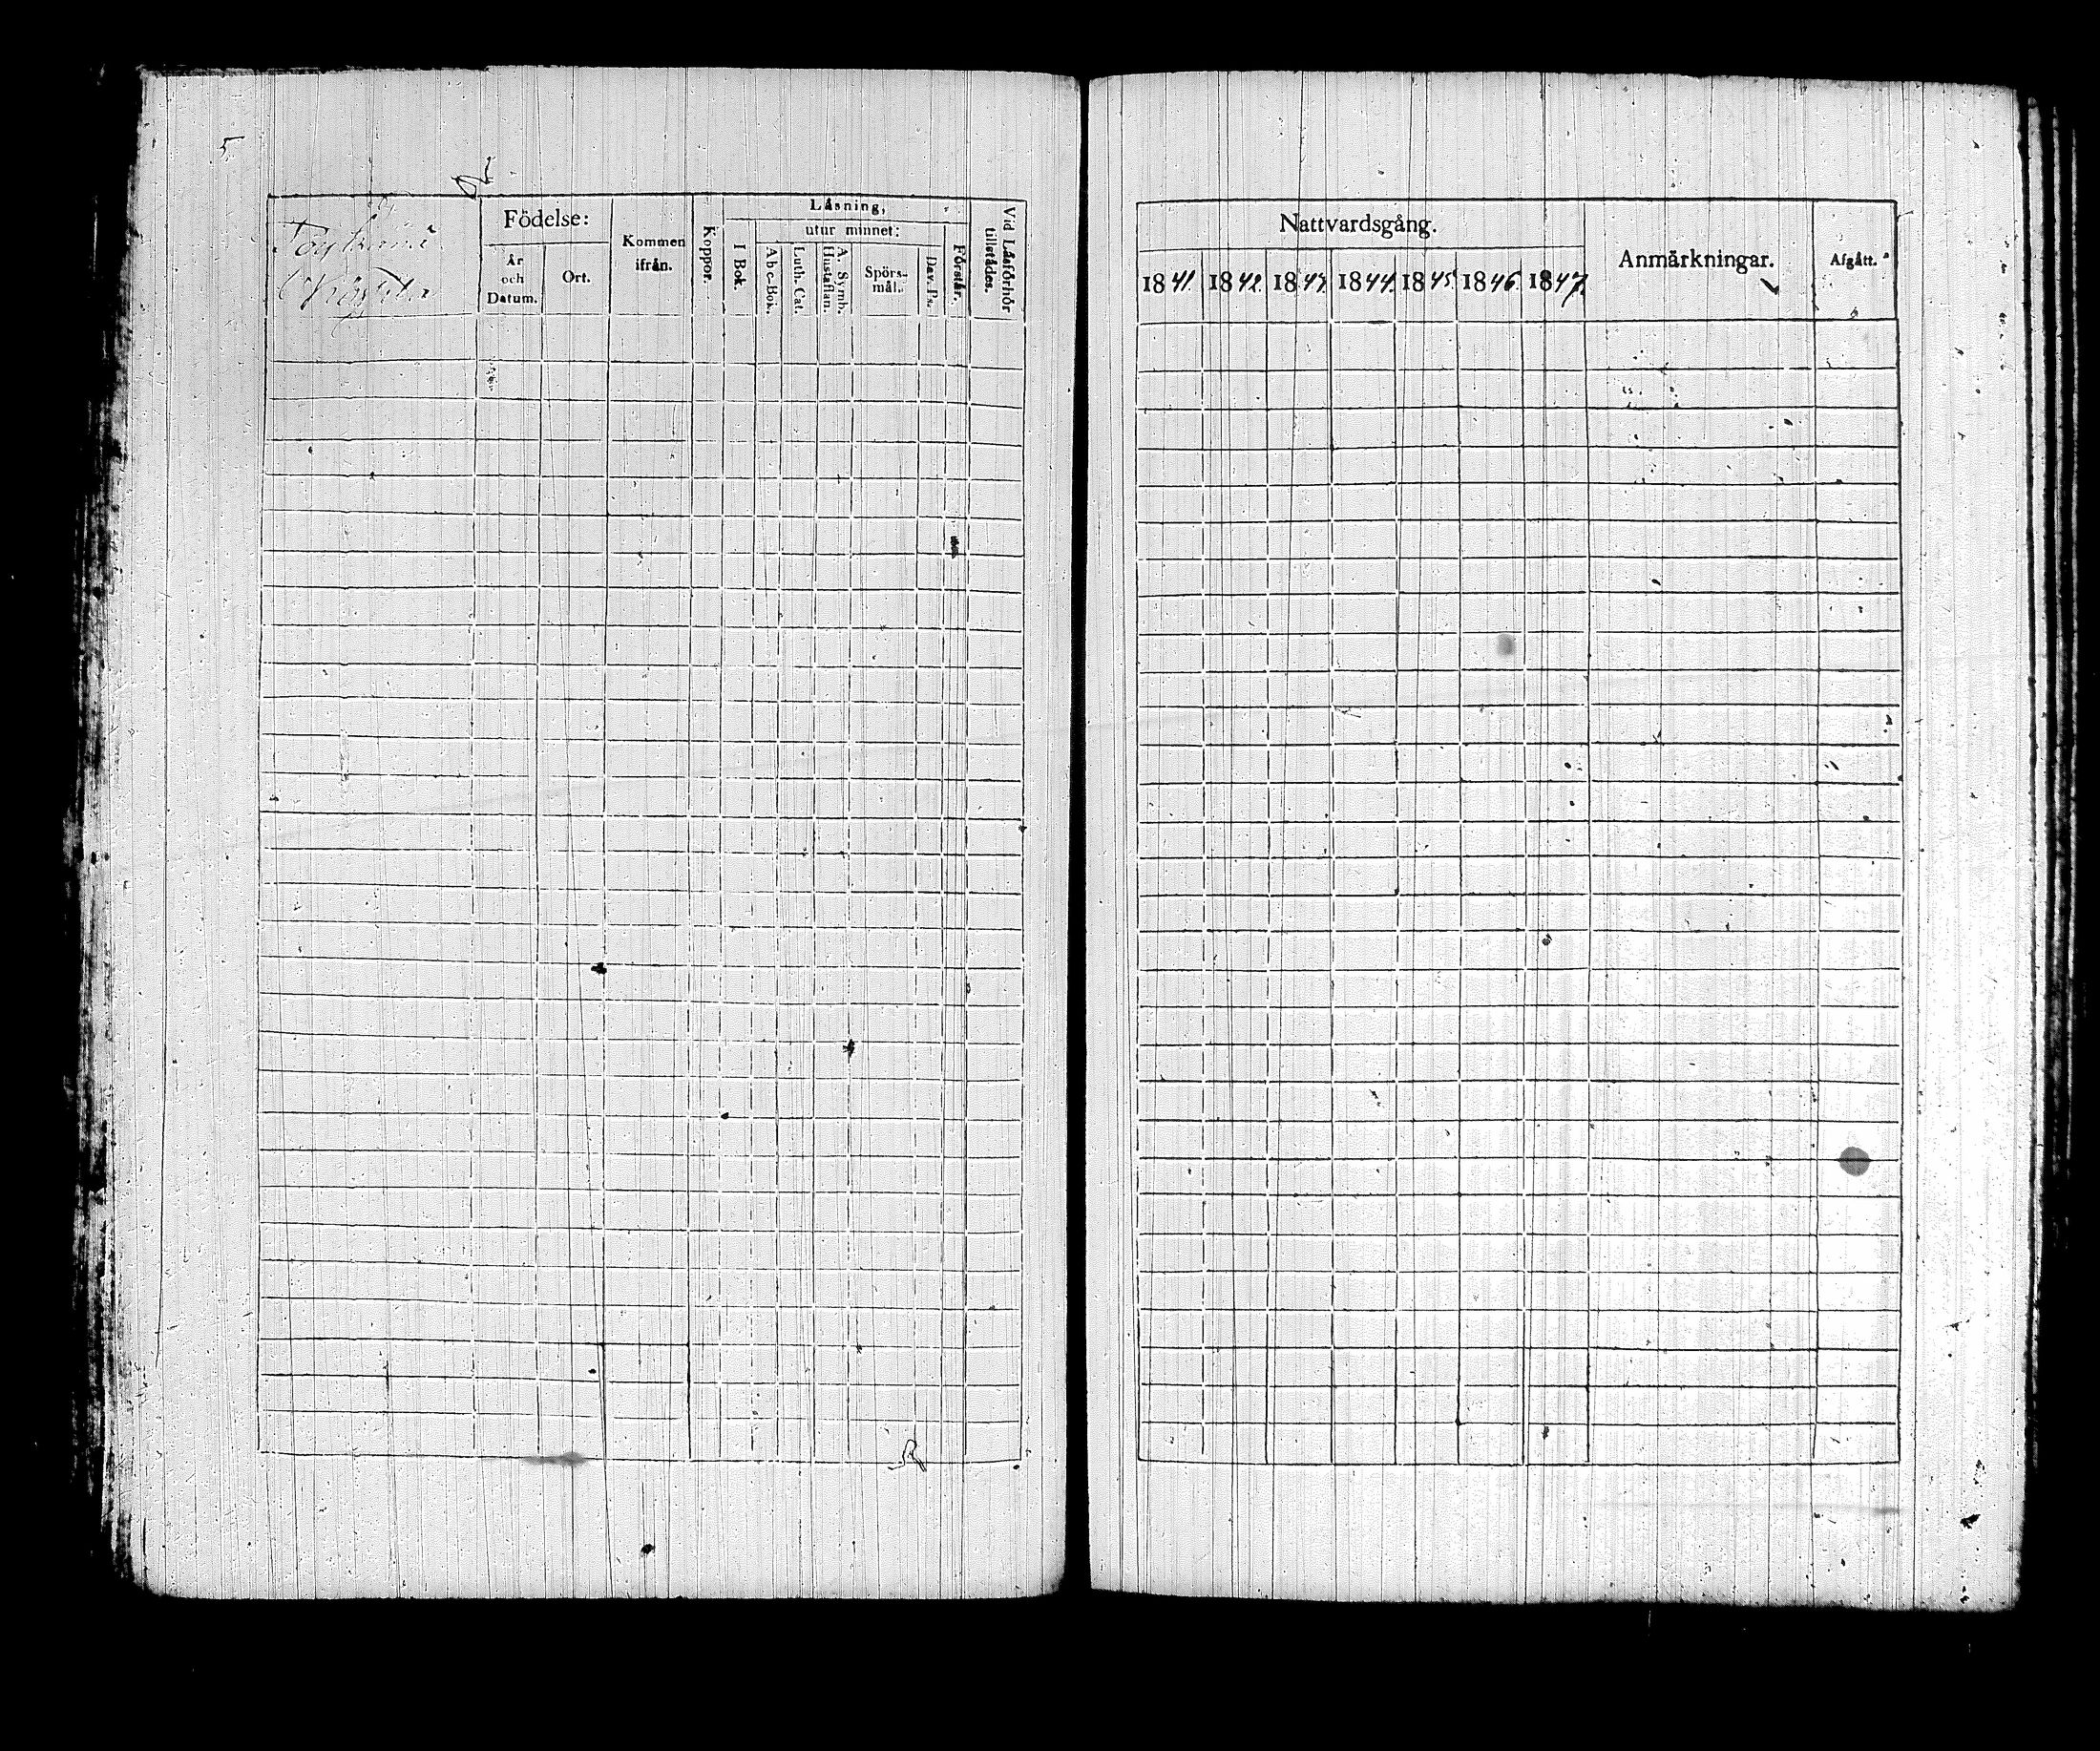 5.
Födelse:
År
och
Datum.
Ort.
Kommen
ifrån.
Koppor.
Läsning,
I Bok.
utur minnet:
Abc-Bok.
Luth. Cat.
A. Symb.
Hustaflan.
Spörs-
mål.
Dav. Ps.
Förstår.
Vid Läsförhör
tillstädes.
Nattvardsgång.
1841. 1842. 1843. 1844. 1845. 1846. 1847.
Anmärkningar.
Afgått.